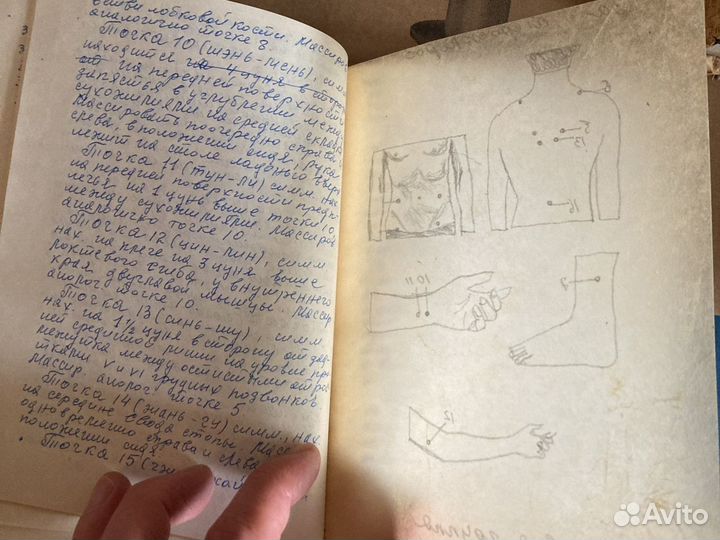 ветви лобковой кости. Масси
аналогично точке 8.
Точка 10 (шэнь-мень), симм.
находится на 4 цуня в сторо
от на передней поверхности
запястья в углублении между
сухожилиями на средней складке
Массировать поочередно справа
слева, в положении сидя, рука
лежит на столе ладонью вверх
Точка 11 (тун-ли) симм. нах
на передней поверхности предп
лечья на 1 цунь выше точки 10
между сухожилиями. Массиров
аналогично точке 10.
Точка 12 (цин-лин), симм
нах. на плече на 3 цуня выше
локтевого сгиба, у внутреннего
края двуглавой мышцы. Массир
аналог. точке 10.
Точка 13 (синь-шу), симм
нах. на 1 1/2 цуня в сторону от зад
ней срединной линии на уровне про
межутка между остистыми отрос
тками V и VI грудных позвонков.
Массир. аналог. точке 5
Точка 14 (жань-гу) симм., нах
на середине свода стопы. Масс
одновременно справа и слева
положении сидя.
Точка 15 (
10 11
12
Avito